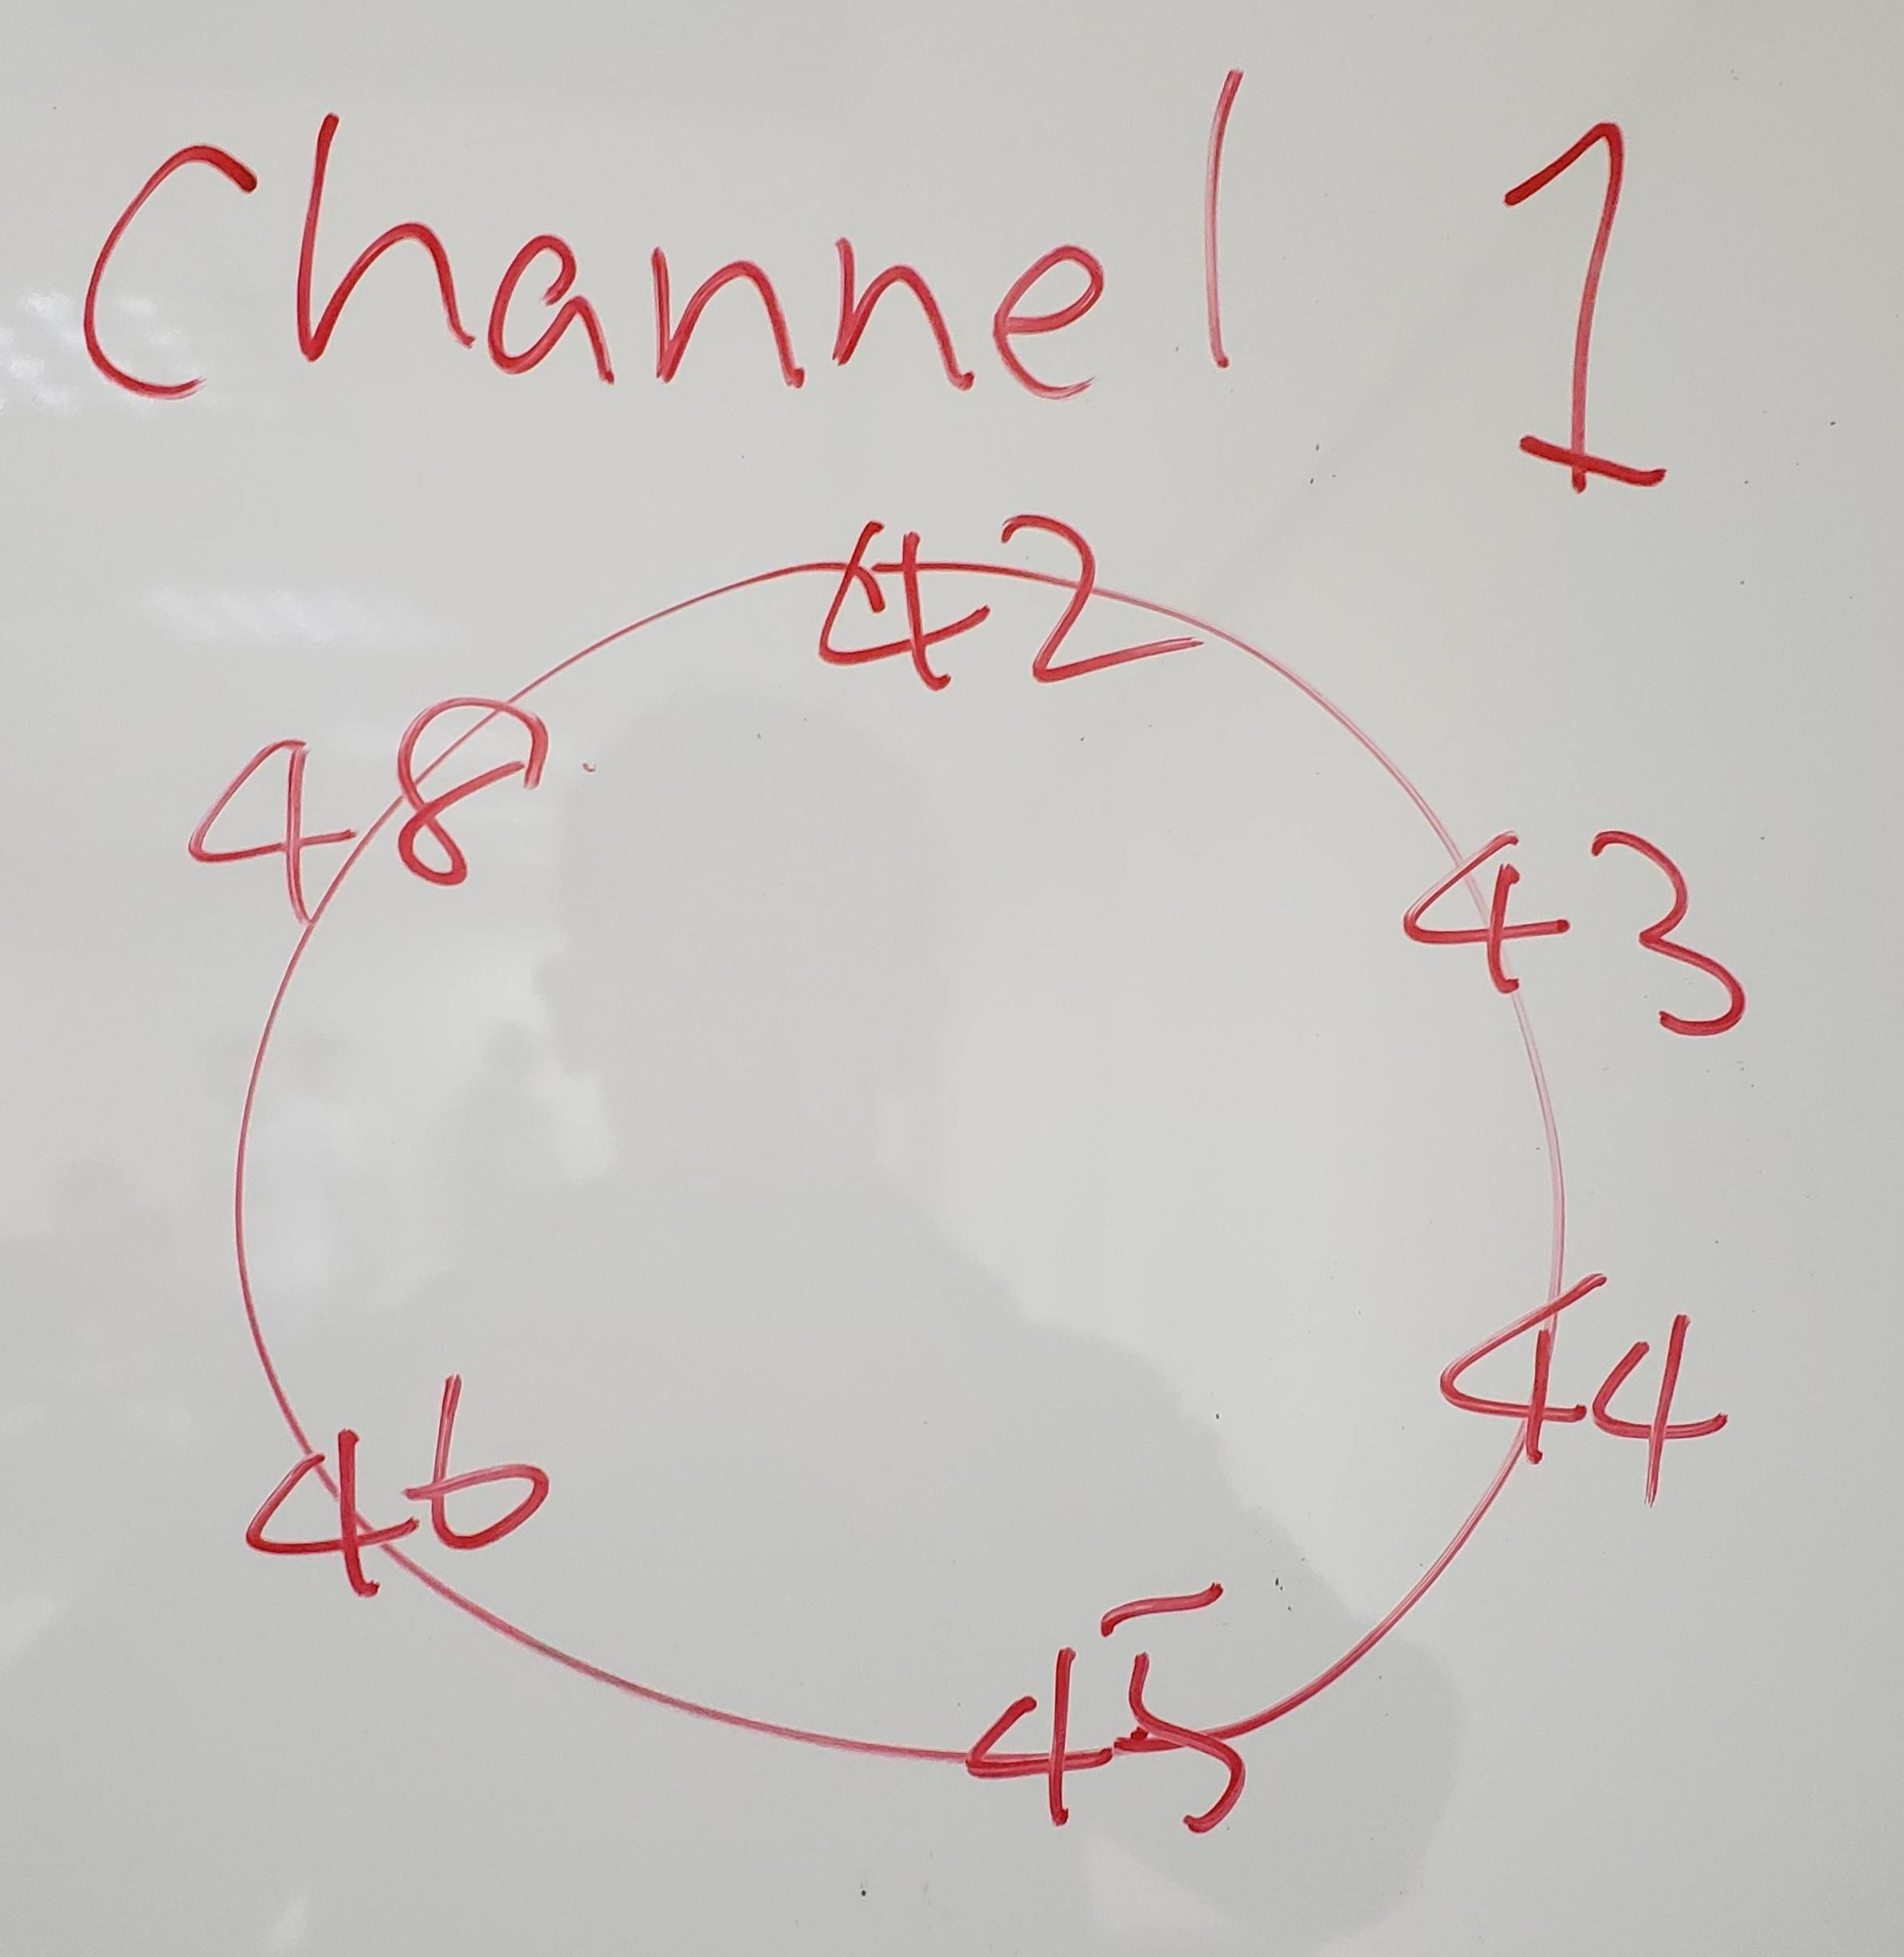 Channel 1
42
48
43
44
46
45